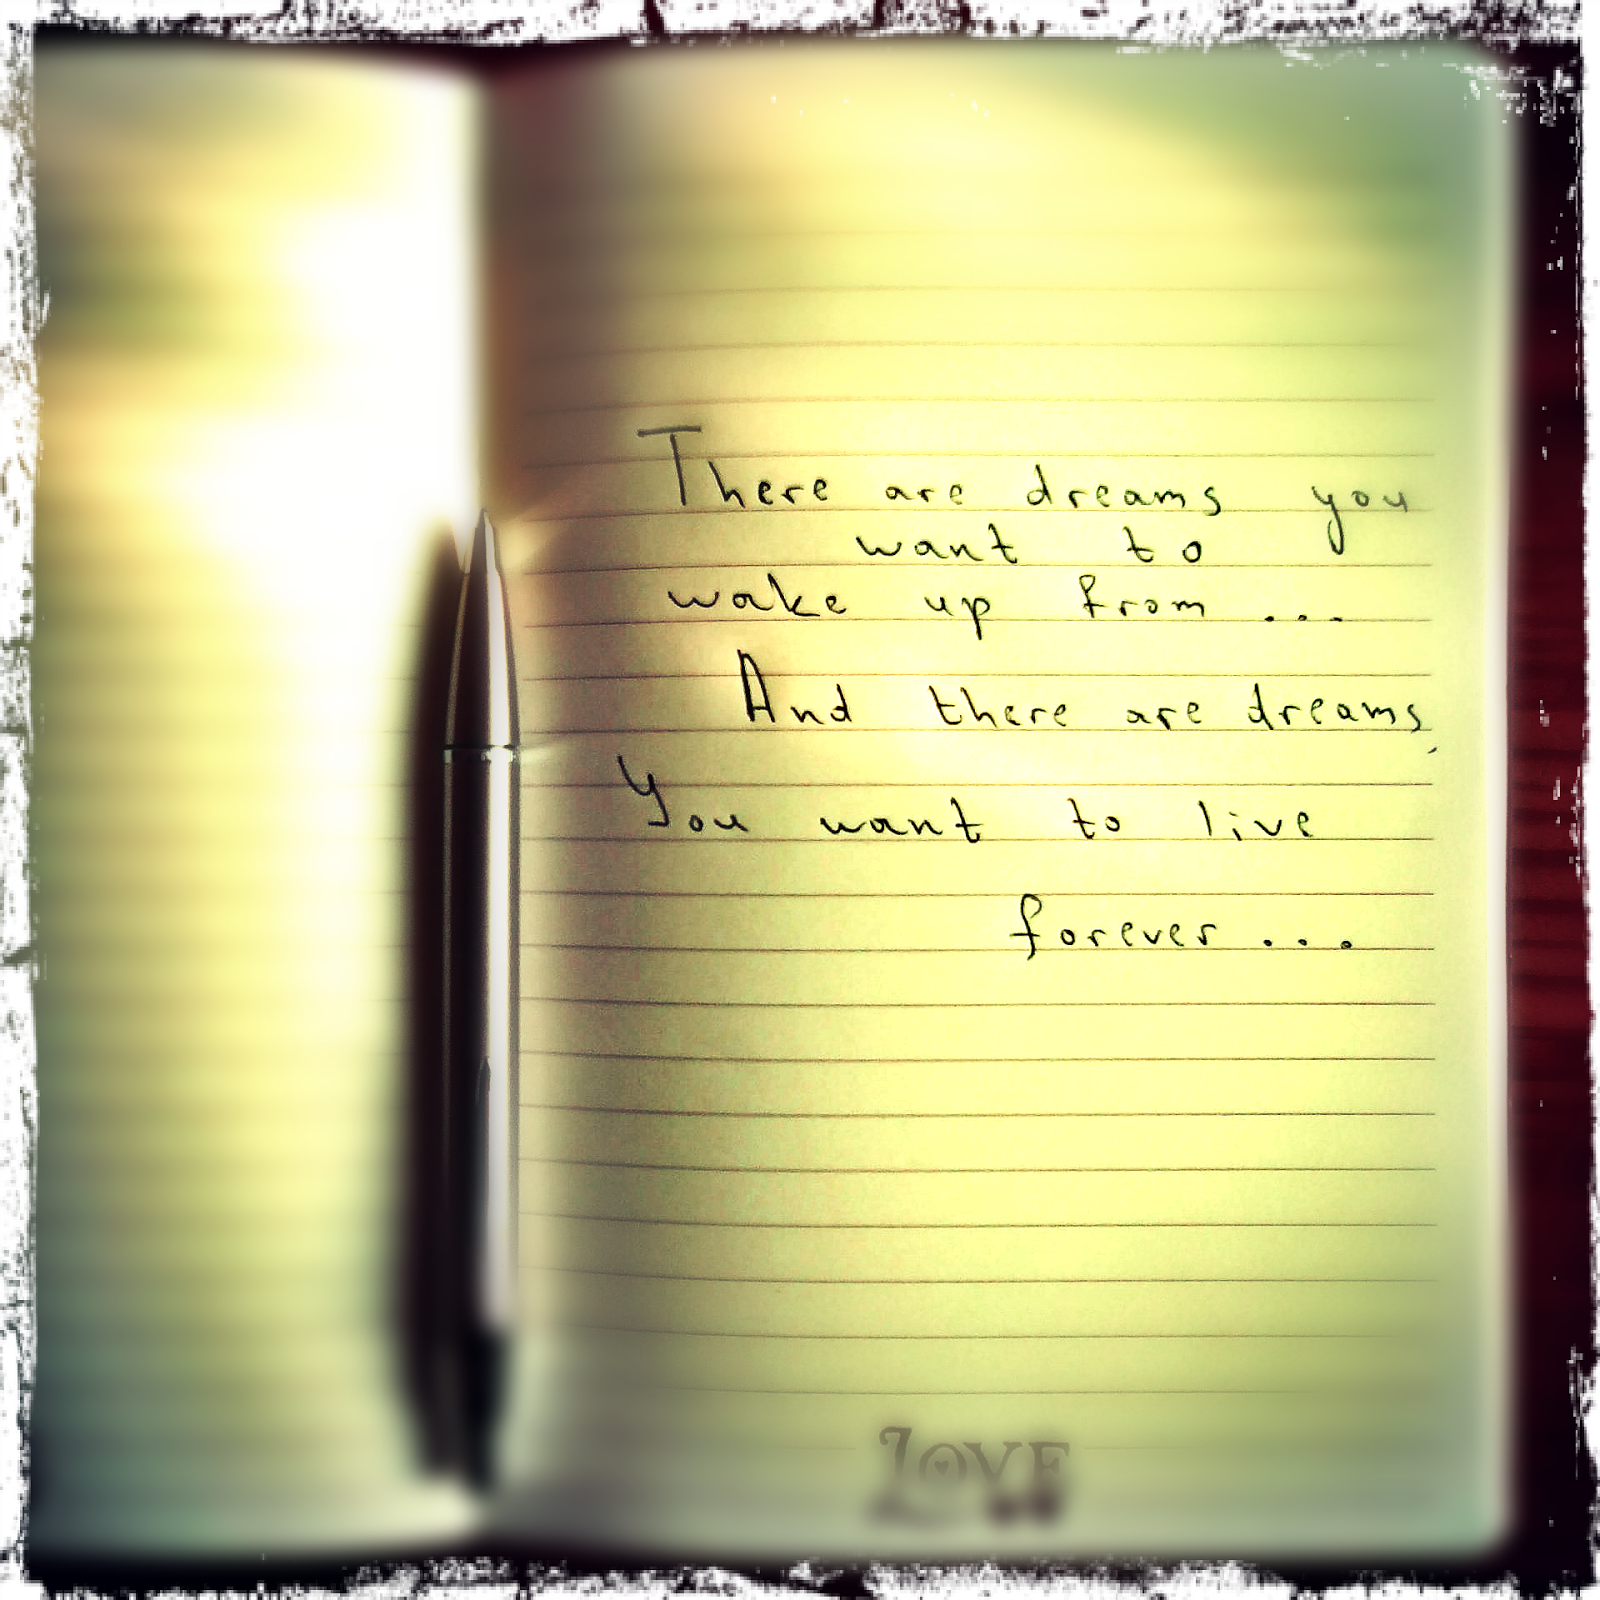 There are dreams you
want to
wake up from ...
And there are dreams,
You want to live
forever ...
LOVE